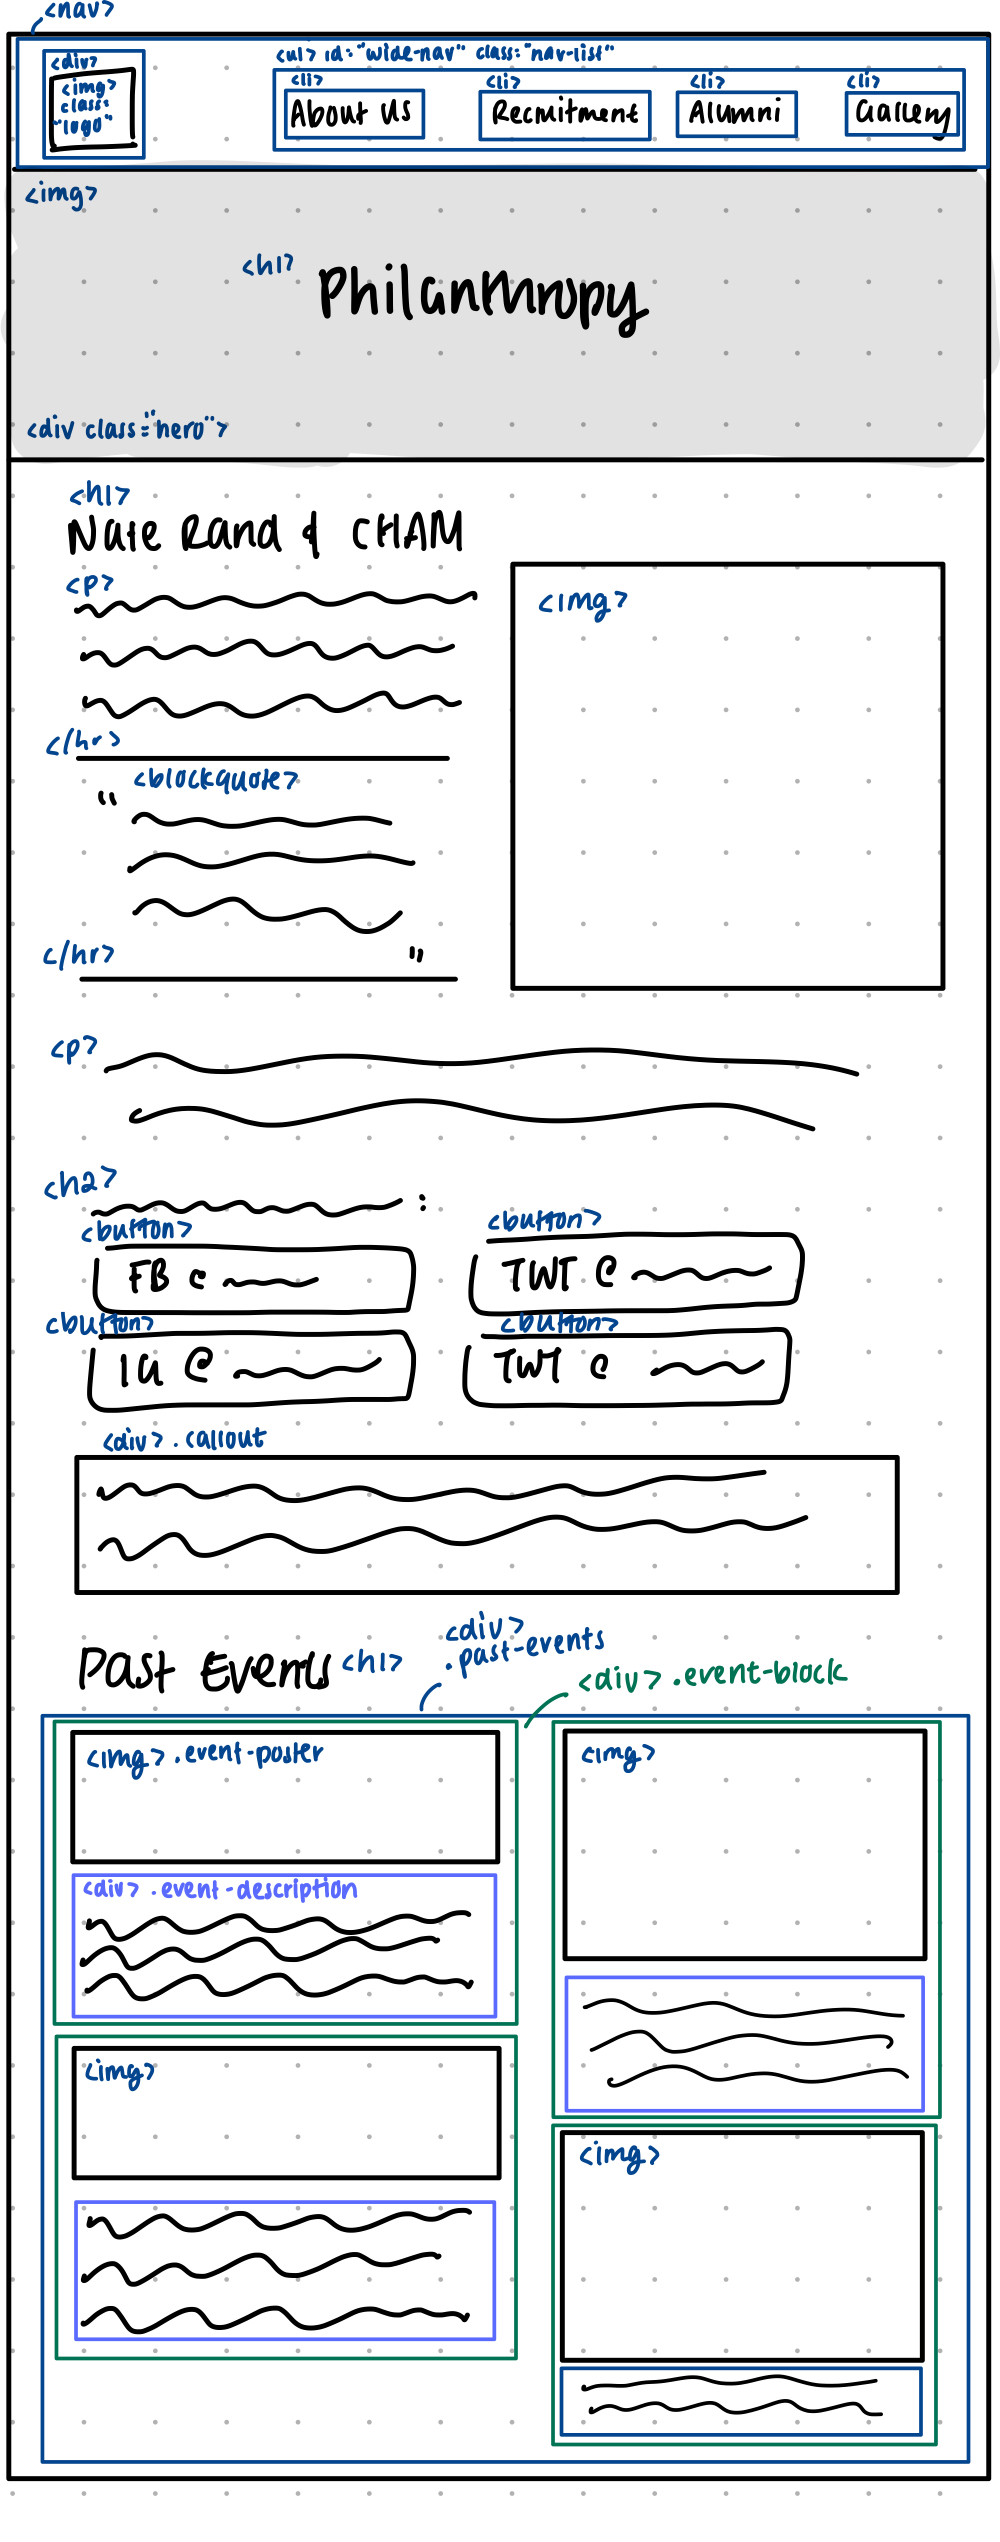 <nav>
<div>
<img>
class=
"logo"
<ul> id="wide-nav" class="nav-list"
<li> <li> <li> <li>
About Us Recruitment Alumni Gallery
<img>
<h1> Philanthropy
<div class="hero">
<h1>
Nate Rand & CHAM
<p>
<img>
</hr>
<blockquote>
"
"
</hr>
<p>
<h2>
:
<button> <button>
FB @ TWT @
<button> <button>
IG @ TWT @
<div> .callout
Past Events <h1>
<div>
.past-events
<div> .event-block
<img> .event-poster
<img>
<div> .event-description
<img>
<img>